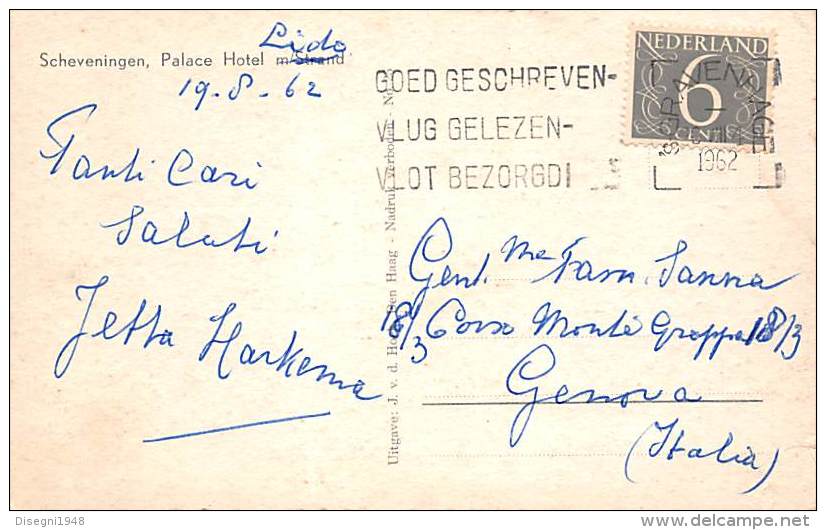 Lido
Scheveningen, Palace Hotel m/Strand
19-8-62
Tanti Cari
Saluti
Jetta Harkema
GOED GESCHREVEN-
VLUG GELEZEN-
VLOT BEZORGD!
NEDERLAND
6
CENT
'S-GRAVENHAGE
1962
Uitgave: J. v. d. Hoek, Den Haag - Nadruk verboden - No.
Gent.me Fam. Sanna
18/3 Corso Monte Grappa 18/3
Genova
(Italia)
Disegni1948
http://www.delcampe.net